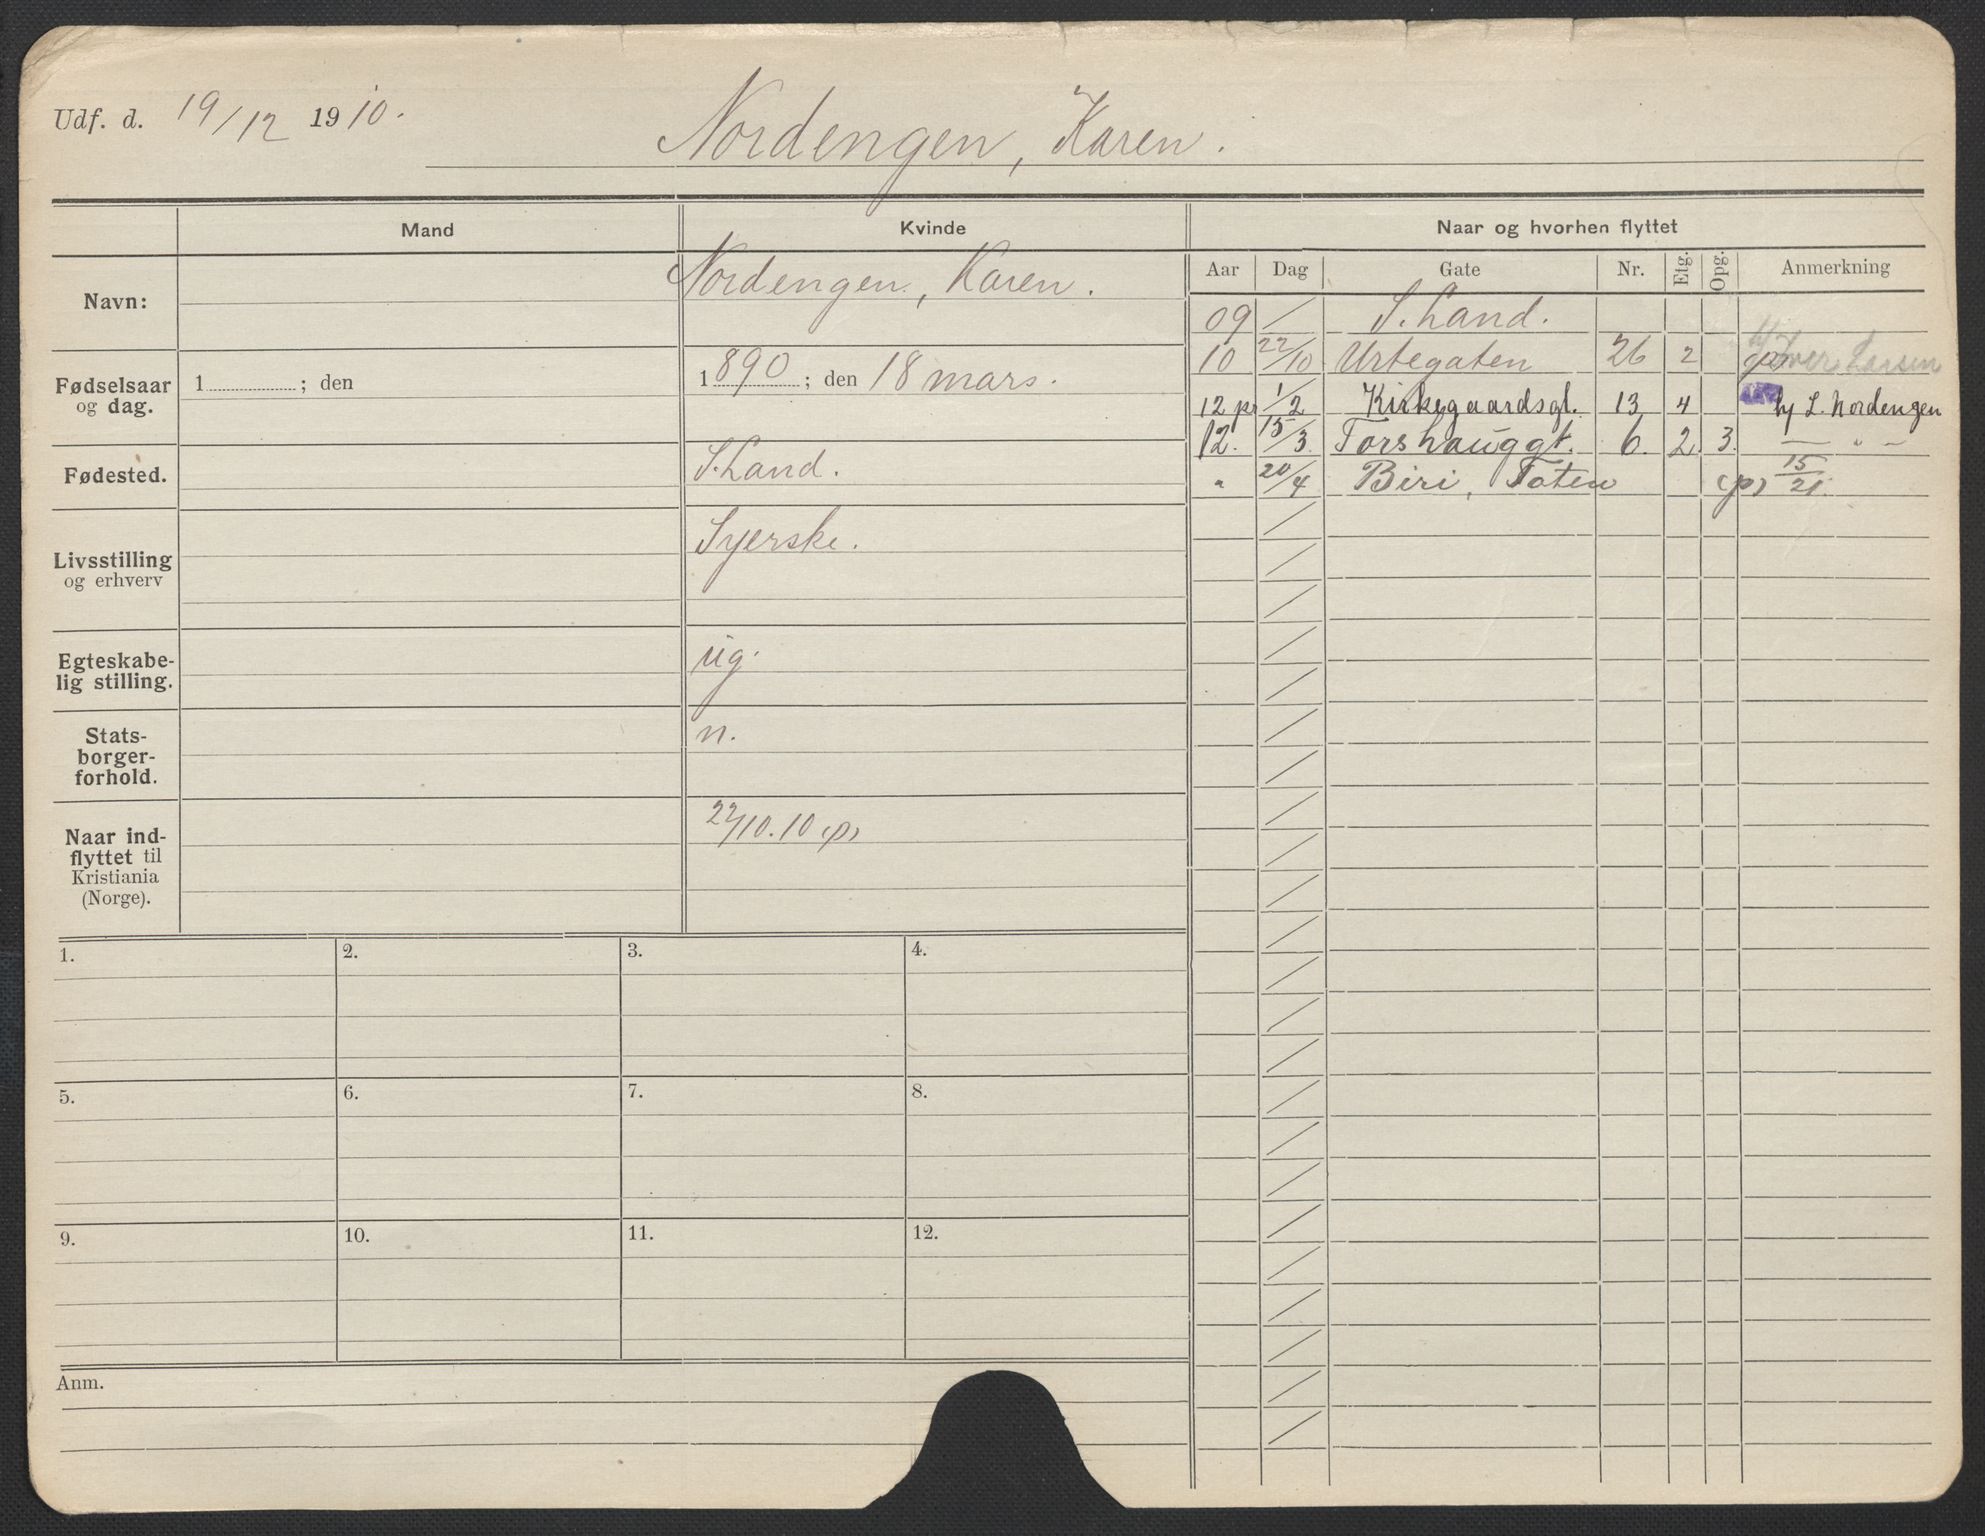 Udf. d. 19/12 1910.
Nordengen, Karen.
Mand Kvinde Naar og hvorhen flyttet
Aar Dag Gate Nr. Etg. Opg. Anmerkning
Navn: Nordengen, Karen.
Fødselsaar og dag. 1 ; den 1890 ; den 18 mars.
Fødested. S. Land.
Livsstilling og erhverv Syerske.
Egteskabelig stilling. ug.
Statsborgerforhold. n.
Naar indflyttet til Kristiania (Norge). 22/10.10 (p)
09 / S. Land.
10 22/10 Urtegaten 26 2 Iver Larsen
12 p 1/2 Kirkegaardsgt. 13 4 hj L. Nordengen
12. 15/3 Torshauggt. 6. 2 3. — " —
" 20/4 Biri, Toten (p) 15/21
1. 2. 3. 4.
5. 6. 7. 8.
9. 10. 11. 12.
Anm.